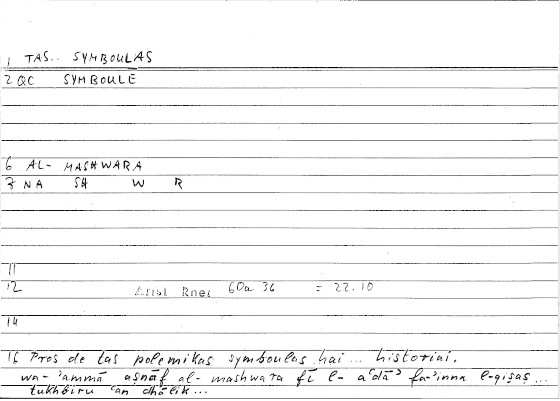 1 TAS.. SYMBOULAS
2 QC SYMBOULE
6 AL- MASHWARA
7 NA SH W R
11
12 Aristot Rhet 60a 36 = 22.10
14
15 Pros de tas polemikas symboulas hai ... historiai.
wa-ʾammā aṣnāf al-mashwara fī l-aʿdāʾ fa-ʾinna l-qiṣaṣ...
tukhbiru ʿan dhālik...